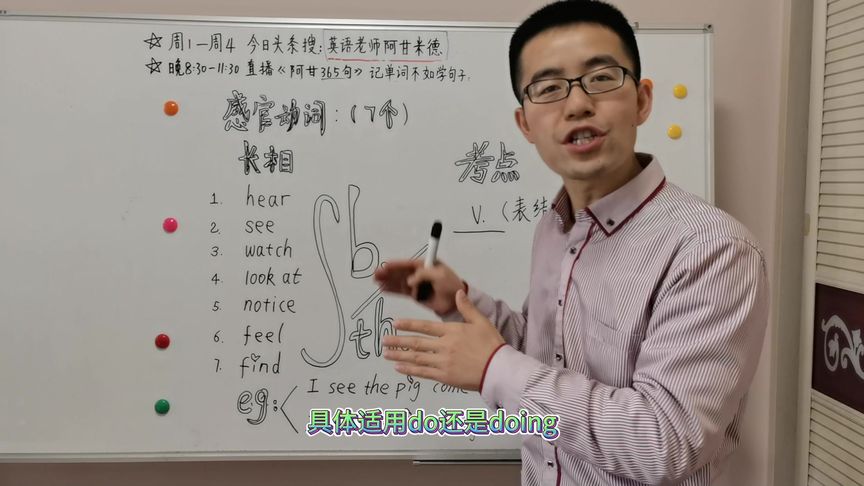 ☆ 周1—周4 今日头条搜:英语老师阿甘来德
☆ 晚8:30-11:30 直播《阿甘365句》记单词不如学句子.
感官动词:(7个)
长相
考点
1. hear
2. see
3. watch
4. look at
5. notice
6. feel
7. find
Sb
sth
V. (表结
eg: I see the pig come
具体适用do还是doing